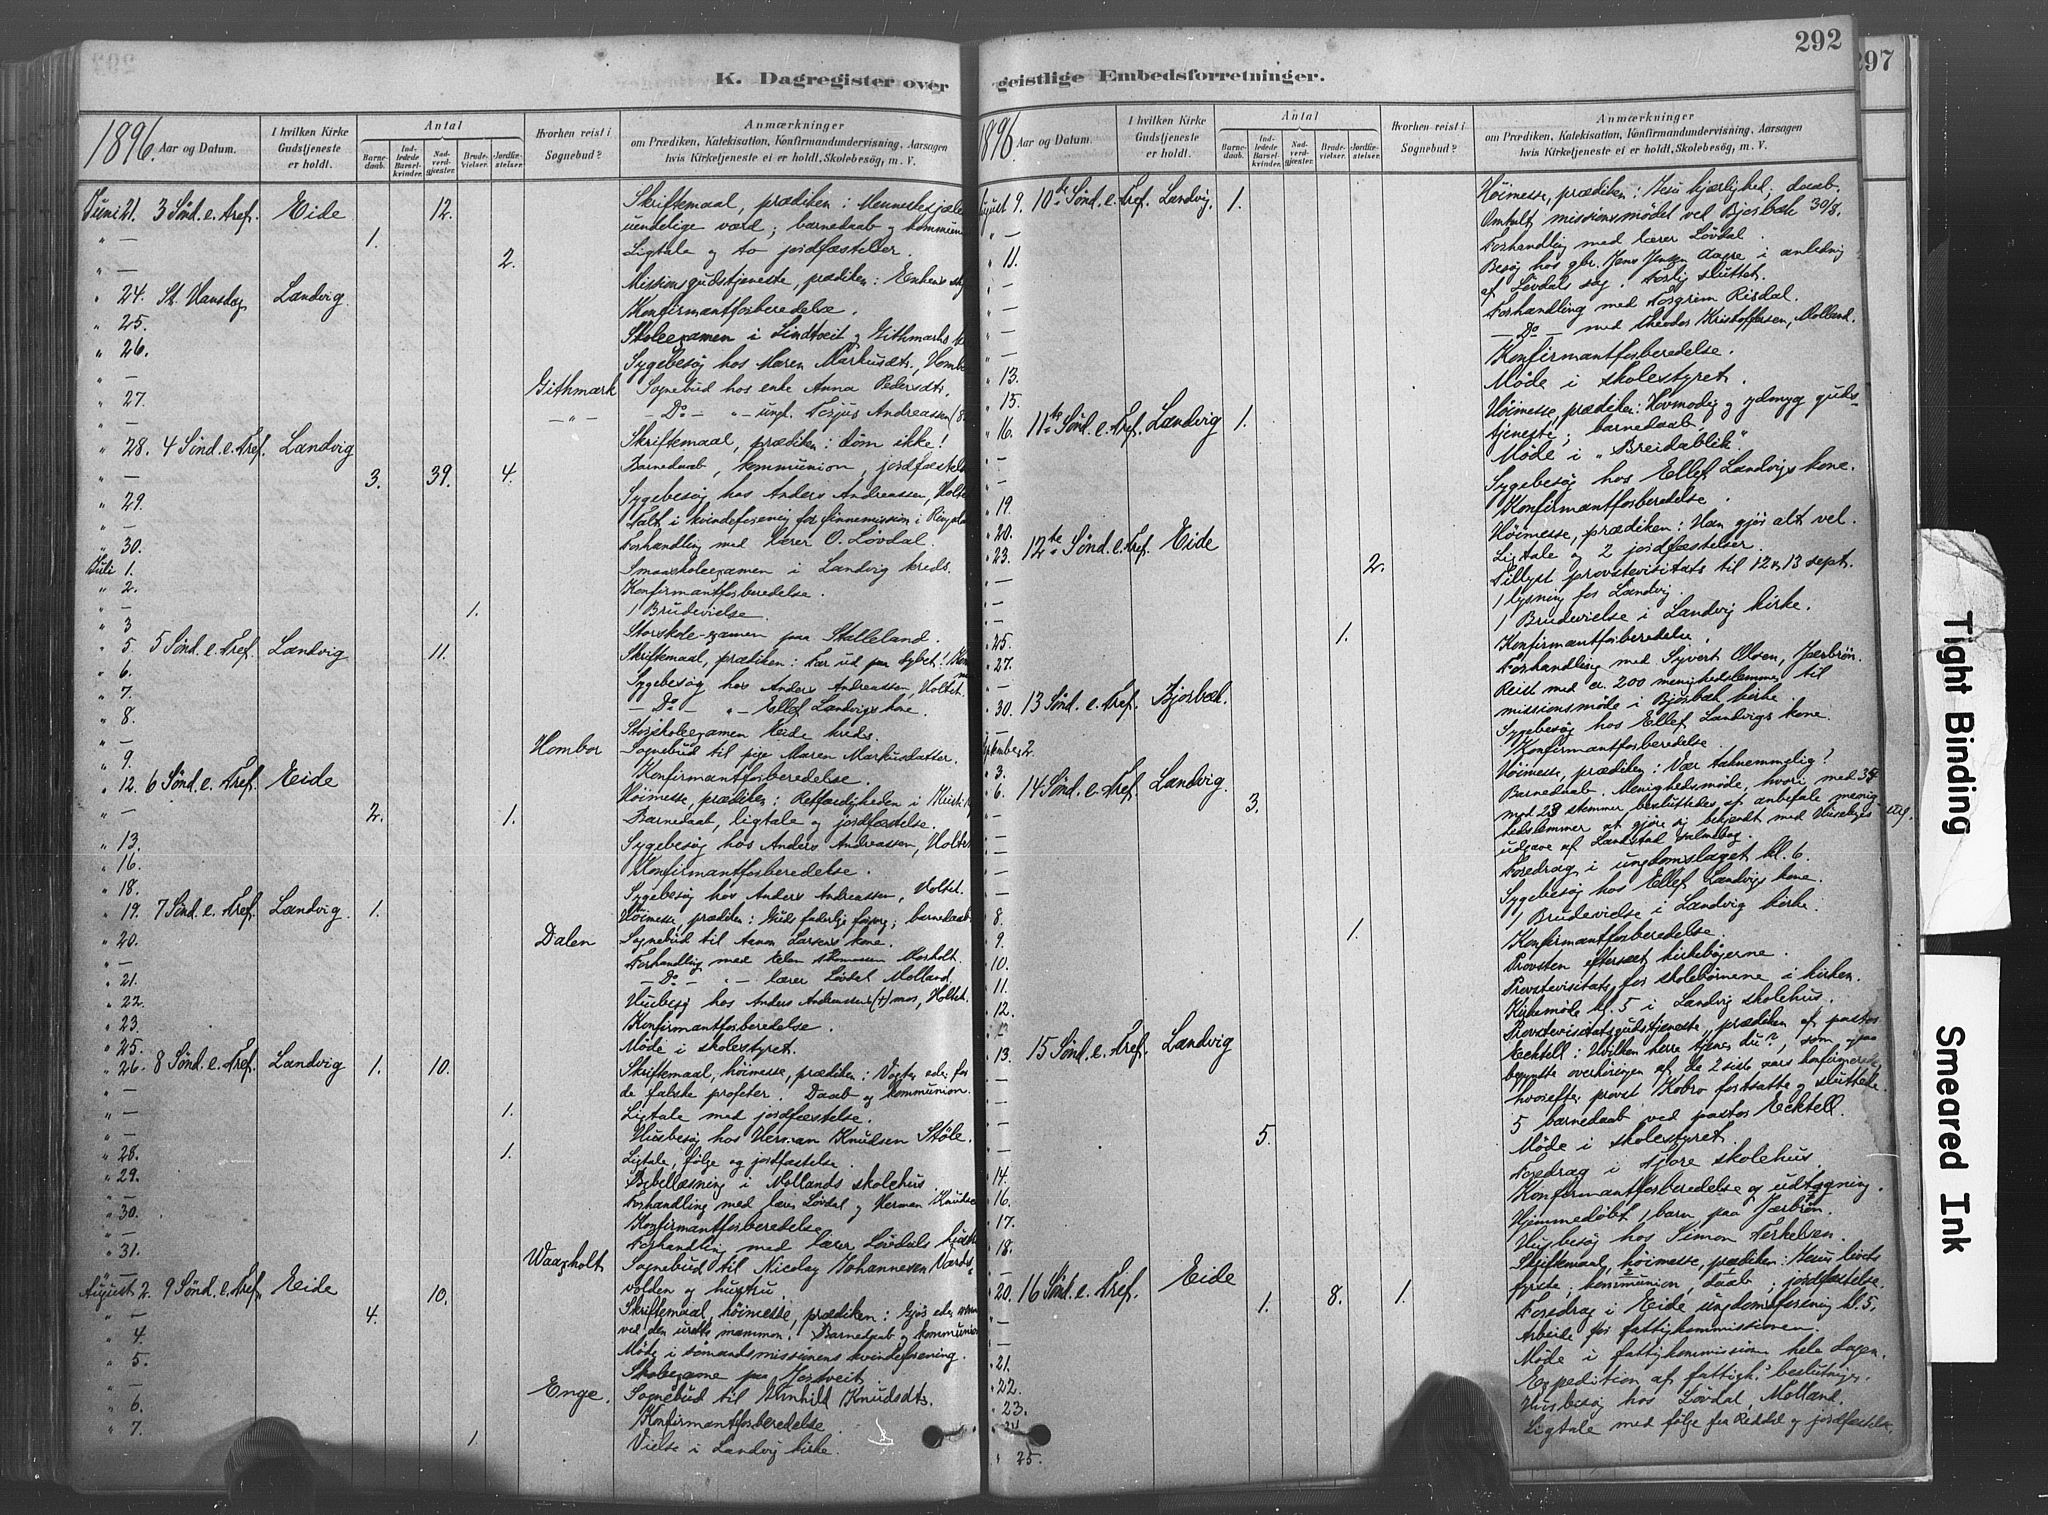 292
297
K. Dagregister over geistlige Embedsforretninger.
1896. Aar og Datum.
I hvilken Kirke Gudstjeneste er holdt.
Antal
Barnedaab.
Indledede Barselkvinder.
Nadverdgjæster.
Brudevielser.
Jordfæstelser.
Hvorhen reist i Sognebud?
Anmærkninger
om Prædiken, Katekisation, Konfirmandundervisning, Aarsagen
hvis Kirketjeneste ei er holdt, Skolebesøg, m. V.
Juni 21. 3 Sønd. e. Tref. Eide 12. Skriftemaal, prædiken: Menneskesjælens
" — 1. uendelige værd; barnedaab og kommunion
" — 2. Ligtale og to jordfæstelser.
" 24. St. Hansdag Landvig Missionsgudstjeneste, prædiken: Enkens
" 25. Konfirmantforberedelse.
" 26. Skoleexamen i Lindtveit og Githmarks
" — Sygebesøg hos Maren Markusdts.,
" 27. Githmark Sognebud hos enke Anna Pedersdts.
" — — " — — Do — " — ungk. Terjus Andreassen
" 28. 4 Sønd. e. Tref. Landvig Skriftemaal, prædiken: døm ikke!
" — 3. 39. 4. Barnedaab, kommunion, jordfæstelse
" 29. Sygebesøg hos Anders Andreassen,
" — Talt i kvindeforening for finnemission i
" 30. Forhandling med lærer O. Løvdal.
Juli 1. Smaaskoleexamen i Landvig kreds.
" 2. Konfirmantforberedelse.
" — 1. 1 Brudevielse
" 3 Storskole-examen paa Stalleland.
" 5 5 Sønd. e. Tref. Landvig 11. Skriftemaal, prædiken: Far ud paa dybet!
" 6. Sygebesøg hos Anders Andreassen, Holtet.
" 7. — Do — " — Ellef Landvigs kone.
" 8. Storskoleexamen Eide kreds.
" — Hombor Sognebud til pige Maren Markusdatter.
" 9. Konfirmantforberedelse.
" 12. 6 Sønd. e. Tref. Eide Høimesse, prædiken: Retfærdigheden i
" — 2. 1. Barnedaab, ligtale og jordfæstelse.
" 13. Sygebesøg hos Anders Andreassen, Holtet
" 16. Konfirmantforberedelse.
" 18. Sygebesøg hos Anders Andreassen, Holtet.
" 19. 7 Sønd. e. Tref. Landvig 1. Høimesse, prædiken: Guds faderlige; barnedaab.
" 20. Dalen Sognebud til Aanon Larsens kone.
" — Forhandling med Thomassen Morholt.
" 21. — Do — " — lærer Løvdal Molland.
" 22. Husbesøg hos Anders Andreassens (+) mor, Holtet.
" 23. Konfirmantforberedelse.
" 25. Møde i skolestyret.
" 26. 8 Sønd. e. Tref. Landvig 1. 10. Skriftemaal, høimesse, prædiken: Vogter eder for
" — de falske profeter. Daab og kommunion.
" — 1. Ligtale med jordfæstelse.
" — Husbesøg hos Herman Knudsen Støle.
" 28. 1. Ligtale, følge og jordfæstelse.
" 29. Bibellæsning i Mollands skolehus
" — Forhandling med lærer Løvdal og Herman
" 30. Konfirmantforberedelse
" — Forhandling med lærer Løvdals
" 31. Waaxholt Sognebud til Nicolay Johannesen
volden og hustru.
August 2. 9 Sønd. e. Tref. Eide 10. Skriftemaal, høimesse, prædiken: Gjør eder venner
" — 4. ved den uretf. mammon. Barnedaab og kommunion
" 4. Møde i sømandsmissionens kvindeforening.
" 5. Skoleexamen paa
" — Enge. Sognebud til Gunhild Knudsdts.
" 6. Konfirmantforberedelse
" 7. 1. Vielse i Landvig kirke.
1896 Aar og Datum.
I hvilken Kirke Gudstjeneste er holdt.
Antal
Barnedaab.
Indledede Barselkvinder.
Nadverdgjæster.
Brudevielser.
Jordfæstelser.
Hvorhen reist i Sognebud?
Anmærkninger
om Prædiken, Katekisation, Konfirmandundervisning, Aarsagen
hvis Kirketjeneste ei er holdt, Skolebesøg, m. V.
August 9. 10de Sønd. e. Tref. Landvig. 1. Høimesse, prædiken: Jesu kjærlighed; daab.
Omtalt missionsmødet ved Bjorbæk 30/8.
" — Forhandling med lærer Løvdal.
" 11. Besøg hos gbr. Jens Jensen Aagre i anledning
af Løvdals sag. Forlig sluttet.
" — Forhandling med Torgrim Risdal.
" — — Do — med Theodor Kristoffersen, Molland.
" — Konfirmantforberedelse.
" 13. Møde i skolestyret.
" 15.
" 16. 11te Sønd. e. Tref. Landvig 1. Høimesse, prædiken: Hovmodig og ydmyg guds-
tjeneste; barnedaab.
" — Møde i "Breidablik".
" 19. Sygebesøg hos Ellef Landvigs kone.
" 20. Konfirmantforberedelse.
" 23. 12te Sønd. e. Tref. Eide 2. Høimesse, prædiken: Han gjør alt vel.
" — Ligtale og 2 jordfæstelser.
" — Tillyst provstevisitats til 12 & 13 sept.
1 lysning for Landvig
" 25. 1. 1 Brudevielse i Landvig kirke.
" 27. Konfirmantforberedelse.
" — Forhandling med Syvert Olsen, Jærbrøn.
" 30. 13 Sønd. e. Tref. Bjorbæk. Reist med ca. 200 menighedslemmer til
missionsmøde i Bjorbæk kirke
" — Sygebesøg hos Ellef Landvigs kone.
September 2.
" 3. Konfirmantforberedelse.
" 6. 14 Sønd. e. Tref. Landvig. 3. Høimesse, prædiken: Vær taknemmelig?
Barnedaab. Menighedsmøde, hvori med 34
mod 28 stemmer besluttedes at anbefale menig-
hedslemmer at gjøre sig bekjendt med Hauges
udgave af Landstad salmebog.
" — Foredrag i ungdomslaget kl. 6.
" 8. Sygebesøg hos Ellef Landvigs kone.
" 9. 1. 1 Brudevielse i Landvig kirke.
" 10. Konfirmantforberedelse.
" 11. Provsten efterseet kirkebøgerne.
" 12. Provstevisitats for skolebørnene i kirken.
Kirkemøde kl. 5 i Landvig skolehus.
" 13. 15 Sønd. e. Tref. Landvig Provstevisitatsgudstjeneste, prædiken af pastor
Ecktell: Hvilken herre tjener du?, som ogsaa
begyndte overhøringen af de 2 siste aars konfirmerede
hvorefter provst Kobro fortsatte og sluttede.
" — 5. 5 barnedaab ved pastor Ecktell.
" 14. Møde i skolestyret.
" 16. Foredrag i Fjære skolehus.
" 17. Konfirmantforberedelse og udtegning.
" 18. Hjemmedøbt 1 barn paa Jærbrøn.
Husbesøg hos Simon Terkelsen.
" 20. 16 Sønd. e. Tref. Eide 1. 8. 1. Skriftemaal, høimesse, prædiken: Jesus livets
fyrste, kommunion, daab, jordfæstelse.
" — Foredrag i Eide ungdomsforening kl. 5.
" 21. Arbeide for fattigkommissionen.
" 22. Møde i fattigkommission hele dagen.
" 23. Expedition af fattigk.s beslutninger.
" 24 Husbesøg hos Løvdal, Molland.
" 25. Ligtale med følge fra Reddal og jordfæstelse.
Tight Binding
Smeared Ink